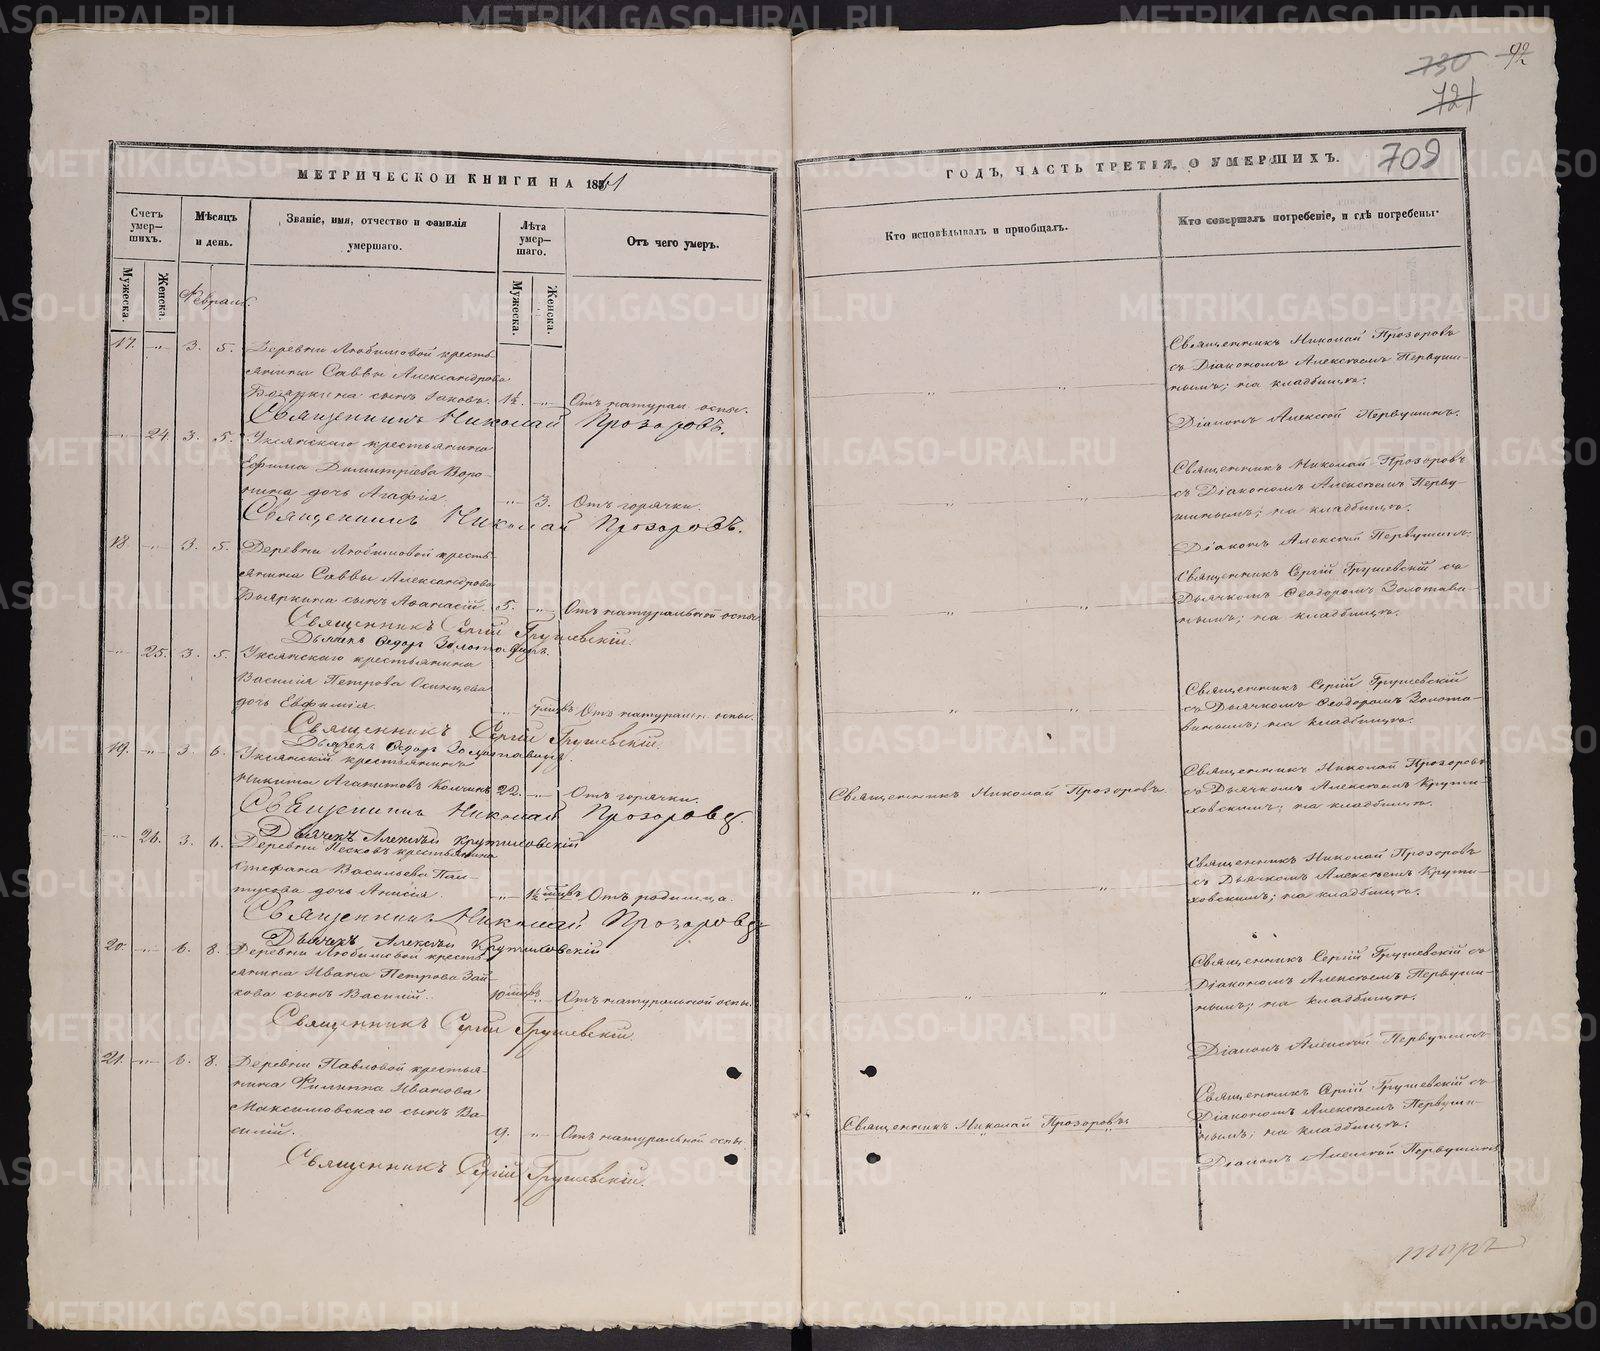 730
721
92
МЕТРИЧЕСКОЙ КНИГИ НА 1861
Счетъ умер-
шихъ.
Мужеска.
Женска.
Мѣсяцъ
и день.
Званіе, имя, отчество и фамилія
умершаго.
Лѣта
умер-
шаго.
Мужеска.
Женска.
Отъ чего умеръ.
Февраль
17. „ 3. 5. Деревни Любимовой кресть-
янина Саввы Александрова
Бояркина сынъ Іаковъ. 1½. „ Отъ натурал. оспы.
Священникъ Николай Прозоровъ.
„ 24. 3. 5. Уксянскаго крестьянина
Ефима Димитріева Воро-
нина дочь Агафія. „ 3. Отъ горячки.
Священникъ Николай Прозоровъ.
18. „ 3. 5. Деревни Любимовой кресть-
янина Саввы Александрова
Бояркина сынъ Афанасій. 5. „ Отъ натуральной оспы.
Священникъ Сергій Грушевскій.
Дьячекъ Федоръ Золотавинъ.
„ 25. 3. 5. Уксянскаго крестьянина
Василія Петрова Осинцева
дочь Евфимія. „ Отъ натуральн. оспы.
Священникъ Сергій Грушевскій.
Дьячекъ Федоръ Золотавинъ.
19. „ 3. 6. Уксянскій крестьянинъ
Никита Агапитовъ Колчинъ 22. „ Отъ горячки.
Священникъ Николай Прозоровъ.
Дьячекъ Алексѣй Крутиховскій
„ 26. 3. 6. Деревни Песковъ крестьянина
Стефана Васильева Пан-
тусова дочь Анисія. „ 1½ мцвъ Отъ родимца.
Священникъ Николай Прозоровъ
Дьячекъ Алексѣй Крутиховскій
20. „ 6. 8. Деревни Любимовой кресть-
янина Ивана Петрова Зай-
кова сынъ Василій. 10 мцвъ „ Отъ натуральной оспы.
Священникъ Сергій Грушевскій.
21. „ 6. 8. Деревни Павловой крестья-
нина Филиппа Иванова
Максимовскаго сынъ Ва-
силій. 19. „ Отъ натуральной оспы.
Священникъ Сергій Грушевскій.
ГОДЪ, ЧАСТЬ ТРЕТІЯ, О УМЕРШИХЪ.
709
Кто исповѣдывалъ и пріобщалъ.
Кто совершалъ погребеніе, и гдѣ погребены.
Священникъ Николай Прозоровъ
съ Діакономъ Алексѣемъ Первуши-
нымъ; на кладбищѣ.
Діаконъ Алексѣй Первушинъ.
Священникъ Николай Прозоровъ
съ Діакономъ Алексѣемъ Перву-
шинымъ; на кладбищѣ.
Діаконъ Алексѣй Первушинъ.
Священникъ Сергій Грушевскій съ
Дьячкомъ Феодоромъ Золотави-
нымъ; на кладбищѣ.
Священникъ Сергій Грушевскій
съ Дьячкомъ Феодоромъ Золота-
винымъ; на кладбищѣ.
Священникъ Николай Прозоровъ
Священникъ Николай Прозоровъ
съ Дьячкомъ Алексѣемъ Крути-
ховскимъ; на кладбищѣ.
Священникъ Николай Прозоровъ
съ Дьячкомъ Алексѣемъ Крути-
ховскимъ; на кладбищѣ.
Священникъ Сергій Грушевскій съ
Діакономъ Алексѣемъ Первуши-
нымъ; на кладбищѣ.
Діаконъ Алексѣй Первушинъ
Священникъ Николай Прозоровъ
Священникъ Сергій Грушевскій съ
Діакономъ Алексѣемъ Первуши-
нымъ; на кладбищѣ.
Діаконъ Алексѣй Первушинъ
METRIKI.GASO-URAL.RU